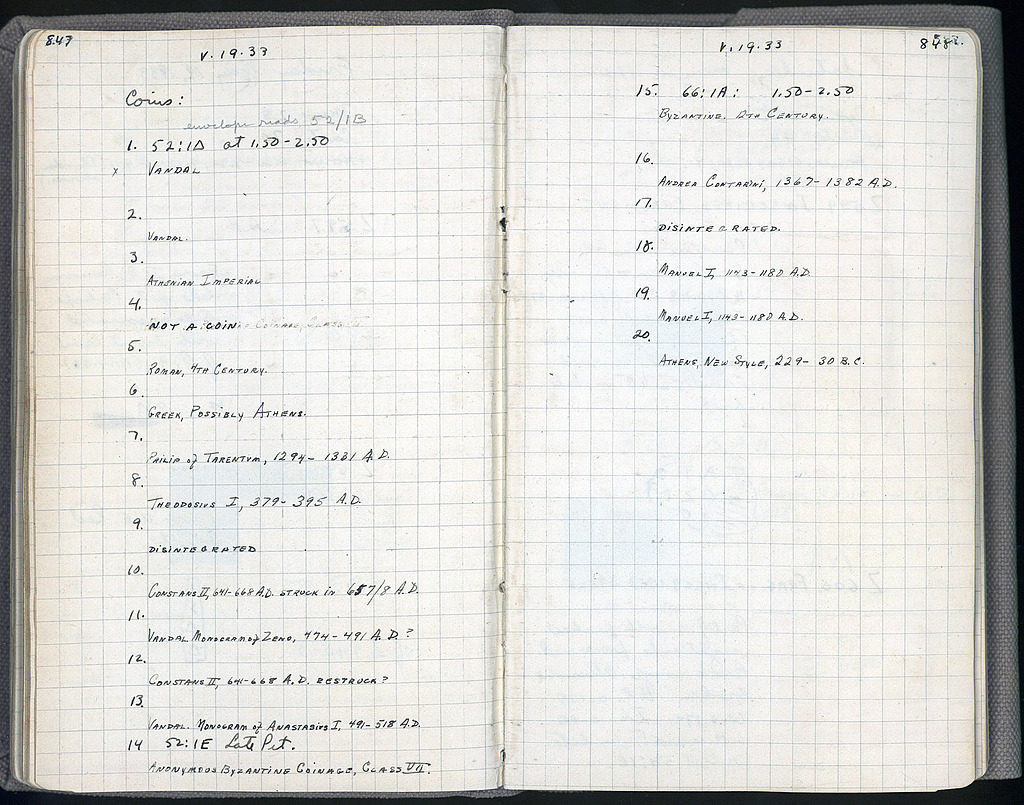 847
V. 19. 33
Coins:
envelope reads 52/1B
1. 52:1Δ at 1.50-2.50
x VANDAL
2.
VANDAL.
3.
ATHENIAN IMPERIAL
4.
NOT A COIN. COINAGE, CLASS
5.
ROMAN, 4TH CENTURY.
6.
GREEK, POSSIBLY ATHENS.
7.
PHILIP of TARENTUM, 1294-1331 A.D.
8.
THEODOSIUS I, 379-395 A.D.
9.
DISINTEGRATED
10.
CONSTANS II, 641-668 A.D. STRUCK IN 657/8 A.D.
11.
VANDAL MONOGRAM of ZENO, 474-491 A.D.?
12.
CONSTANS II, 641-668 A.D. RESTRUCK?
13.
VANDAL. MONOGRAM of ANASTASIUS I, 491-518 A.D.
14 52:1E Late Pit.
ANONYMOUS BYZANTINE COINAGE, CLASS VII.
848
V. 19. 33
15. 66:1A: 1.50-2.50
BYZANTINE. CENTURY.
16.
ANDREA CONTARINI, 1367-1382 A.D.
17.
DISINTEGRATED.
18.
MANUEL I, 1143-1180 A.D.
19.
MANUEL I, 1143-1180 A.D.
20.
ATHENS, NEW STYLE, 229-30 B.C.